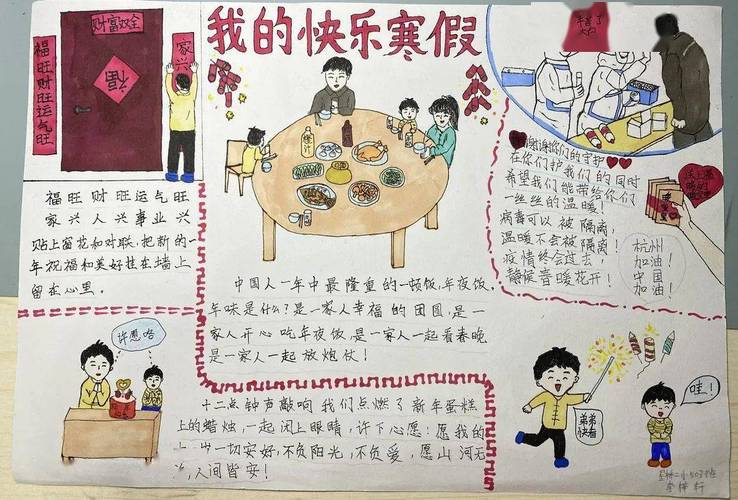 我的快乐寒假
财富双全
福旺财旺运气旺
家兴
福
福旺财旺运气旺
家兴人兴事业兴
贴上窗花和对联,把新的一
年祝福和美好挂在墙上
留在心里。
橙汁
中国人一年中最隆重的一顿饭,年夜饭,
年味是什么?是一家人幸福的团圆,是一
家人开心吃年夜饭,是一家人一起看春晚,
是一家人一起放炮仗!
谢谢你们的守护
在你们护我们的同时
希望我们能带给你们
一丝丝的温暖!
病毒可以被隔离,
温暖不会被隔离!
疫情终会过去,
静候春暖花开!
送上暖
暖的
杭州
加油!
中国
加油!
许愿咯
十二点钟声敲响我们点燃了新年蛋糕
上的蜡烛,一起闭上眼睛,许下心愿:愿我的
一切安好,不负阳光,不负爱,愿山河无
,人间皆安!
弟弟
快看
哇!